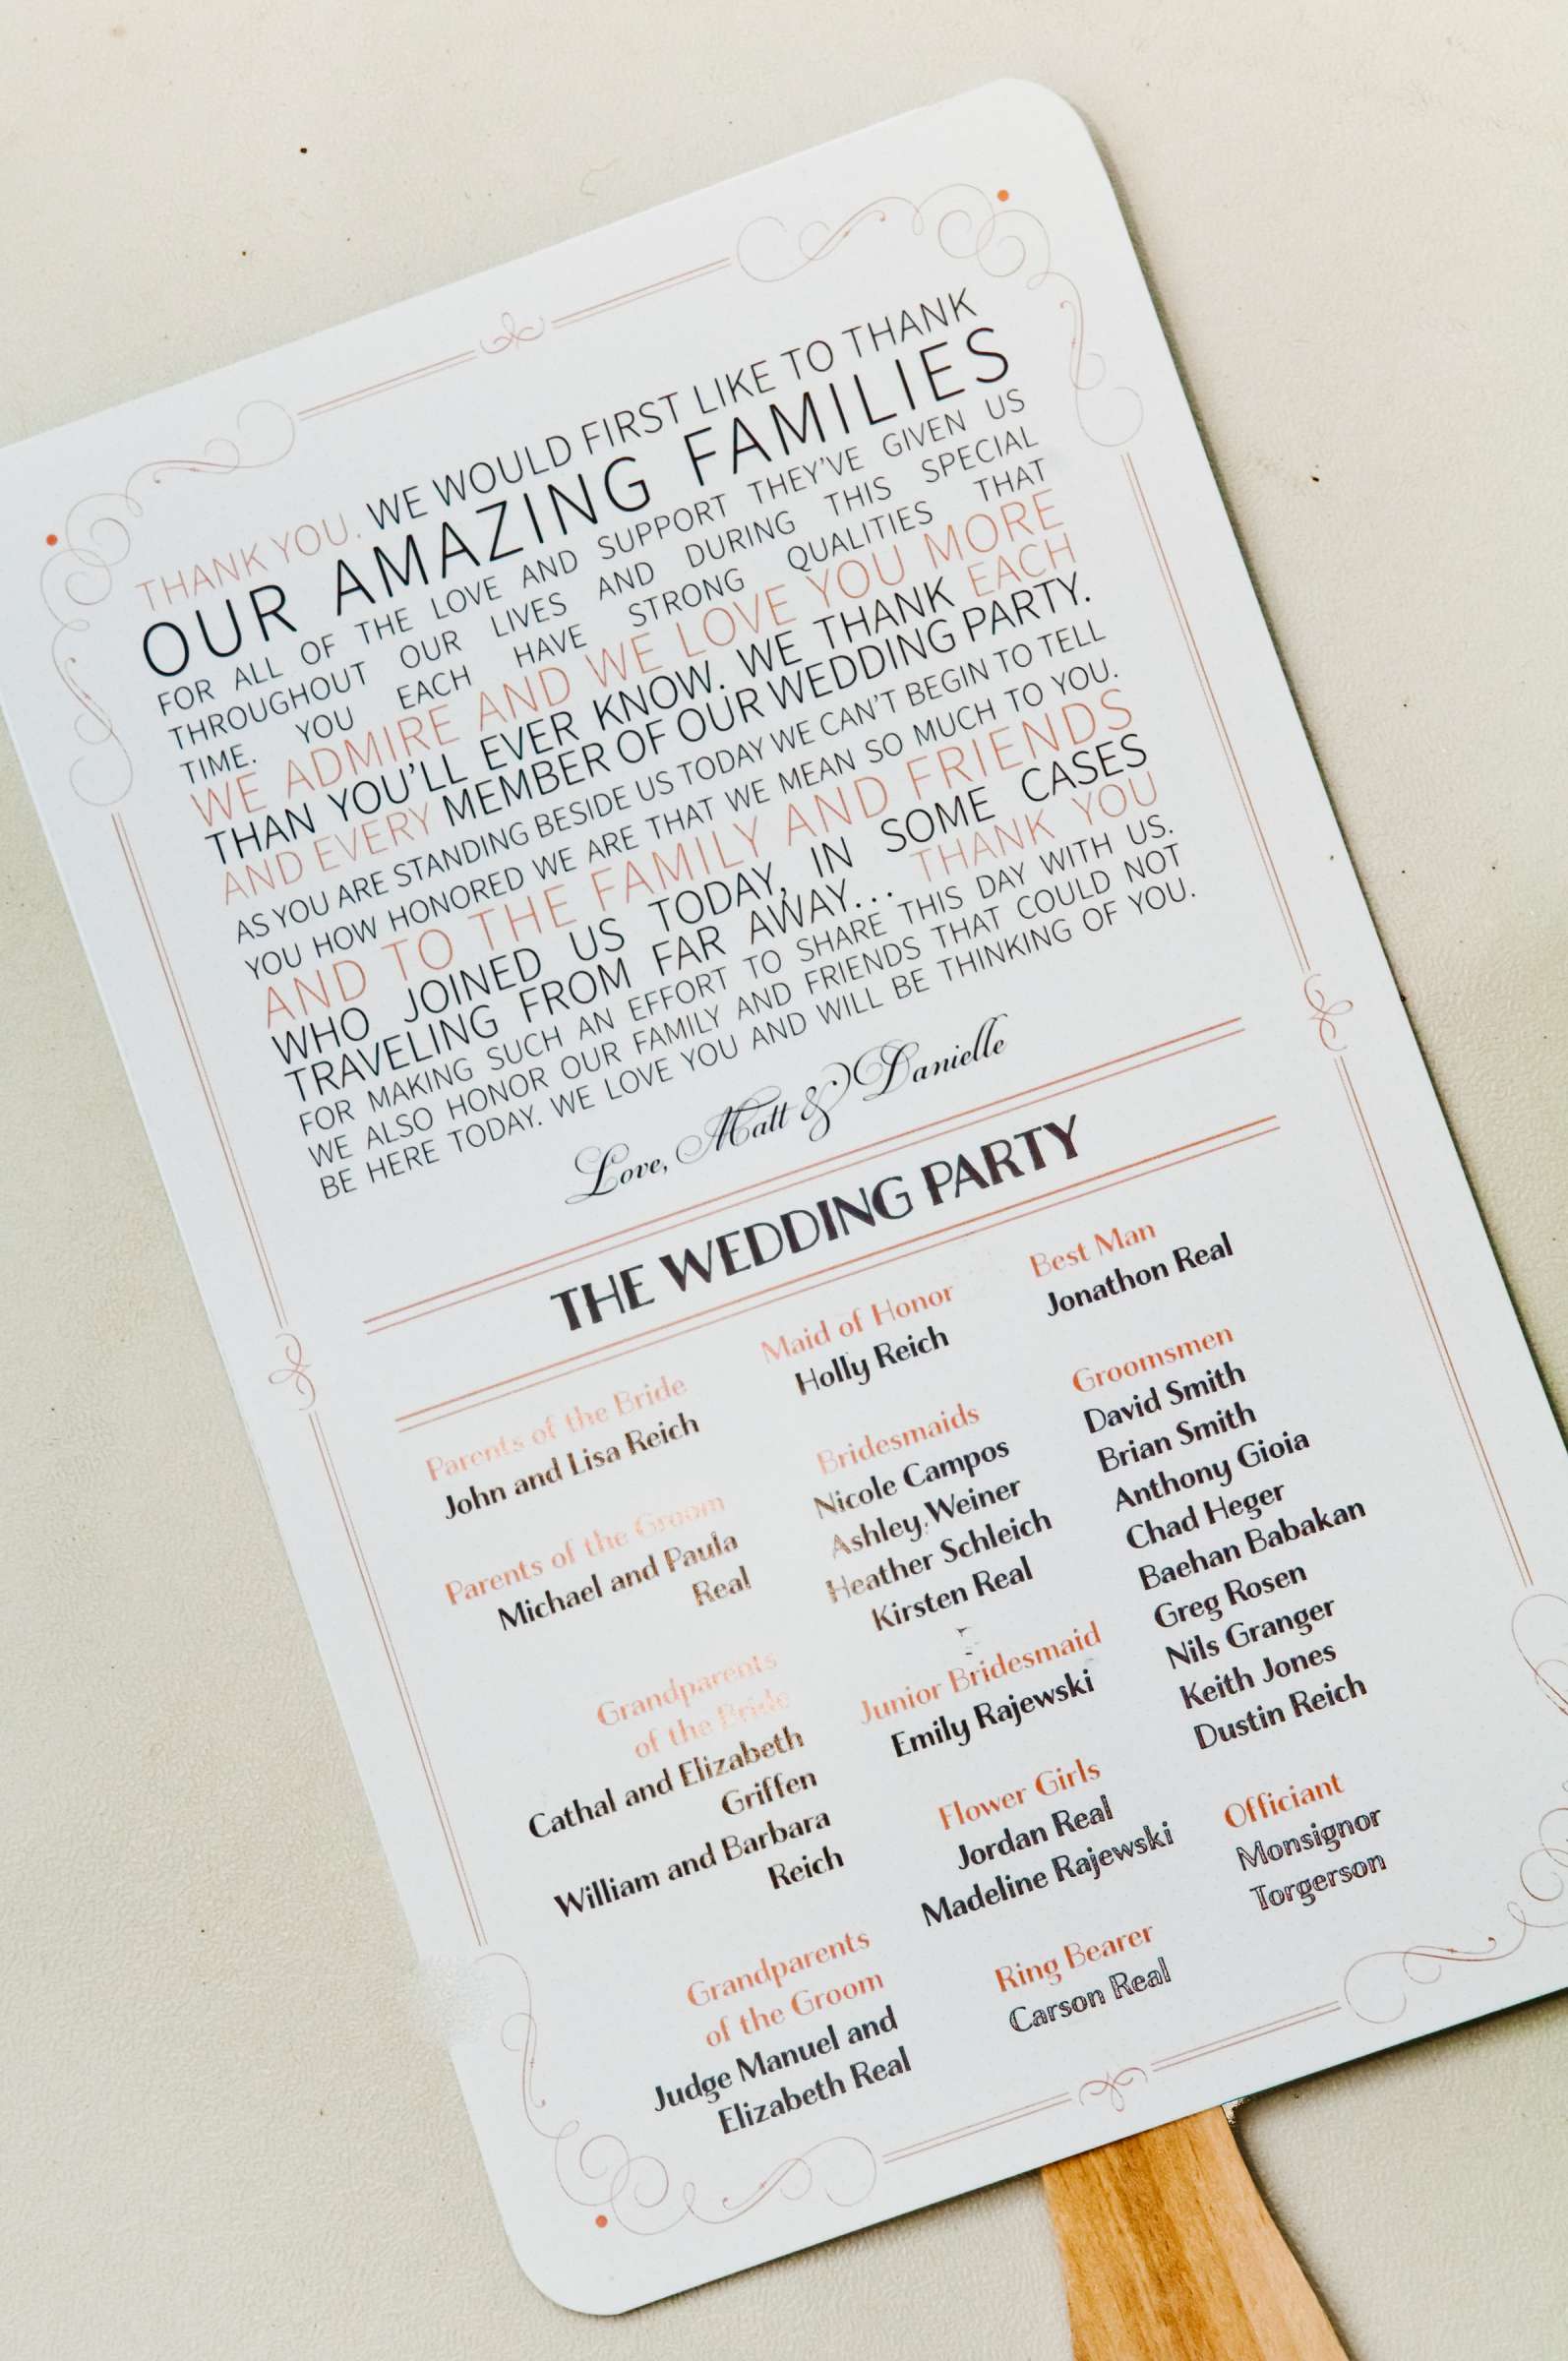 THANK YOU. WE WOULD FIRST LIKE TO THANK
OUR AMAZING FAMILIES
FOR ALL OF THE LOVE AND SUPPORT THEY'VE GIVEN US
THROUGHOUT OUR LIVES AND DURING THIS SPECIAL
TIME. YOU EACH HAVE STRONG QUALITIES THAT
WE ADMIRE AND WE LOVE YOU MORE
THAN YOU'LL EVER KNOW. WE THANK EACH
AND EVERY MEMBER OF OUR WEDDING PARTY.
AS YOU ARE STANDING BESIDE US TODAY WE CAN'T BEGIN TO TELL
YOU HOW HONORED WE ARE THAT WE MEAN SO MUCH TO YOU.
AND TO THE FAMILY AND FRIENDS
WHO JOINED US TODAY, IN SOME CASES
TRAVELING FROM FAR AWAY... THANK YOU
FOR MAKING SUCH AN EFFORT TO SHARE THIS DAY WITH US.
WE ALSO HONOR OUR FAMILY AND FRIENDS THAT COULD NOT
BE HERE TODAY. WE LOVE YOU AND WILL BE THINKING OF YOU.
Love, Matt & Danielle
THE WEDDING PARTY
Parents of the Bride
John and Lisa Reich
Parents of the Groom
Michael and Paula
Real
Grandparents
of the Bride
Cathal and Elizabeth
Griffen
William and Barbara
Reich
Grandparents
of the Groom
Judge Manuel and
Elizabeth Real
Maid of Honor
Holly Reich
Bridesmaids
Nicole Campos
Ashley Weiner
Heather Schleich
Kirsten Real
Junior Bridesmaid
Emily Rajewski
Flower Girls
Jordan Real
Madeline Rajewski
Ring Bearer
Carson Real
Best Man
Jonathon Real
Groomsmen
David Smith
Brian Smith
Anthony Gioia
Chad Heger
Baehan Babakan
Greg Rosen
Nils Granger
Keith Jones
Dustin Reich
Officiant
Monsignor
Torgerson